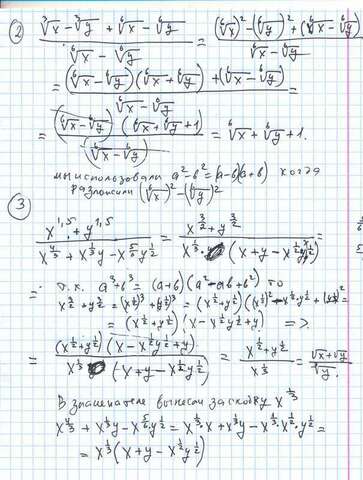 ② (∛x − ∛y + ⁶√x − ⁶√y) / (⁶√x − ⁶√y) = ((⁶√x)² − (⁶√y)² + (⁶√x − ⁶√y)) / (⁶√x − ⁶√y)
= ((⁶√x − ⁶√y)(⁶√x + ⁶√y) + (⁶√x − ⁶√y)) / (⁶√x − ⁶√y) =
= ((⁶√x − ⁶√y) (⁶√x + ⁶√y + 1)) / (⁶√x − ⁶√y) = ⁶√x + ⁶√y + 1.
мы использовали a² − b² = (a−b)(a+b) когда
разложили (⁶√x)² − (⁶√y)²
③ (x^1,5 + y^1,5) / (x^(4/3) + x^(1/3)y − x^(5/6)y^(1/2)) = (x^(3/2) + y^(3/2)) / (x^(1/3) · (x + y − x^(1/2)y^(1/2))) =
= т.к. a³ + b³ = (a+b)(a² − ab + b²) то
x^(3/2) + y^(3/2) = (x^(1/2))³ + (y^(1/2))³ = (x^(1/2) + y^(1/2))((x^(1/2))² − x^(1/2)·y^(1/2) + (y^(1/2))² =
= (x^(1/2) + y^(1/2)) (x − x^(1/2)y^(1/2) + y) =>
= ((x^(1/2) + y^(1/2)) (x − x^(1/2)y^(1/2) + y)) / (x^(1/3) (x + y − x^(1/2)y^(1/2))) = (x^(1/2) + y^(1/2)) / x^(1/3) = (√x + √y) / ∛y.
В знаменателе вынесем за скобку x^(1/3)
x^(4/3) + x^(1/3)y − x^(5/6)·y^(1/2) = x^(1/3)·x + x^(1/3)y − x^(1/3)·x^(1/2)·y^(1/2) =
= x^(1/3)(x + y − x^(1/2)y^(1/2))